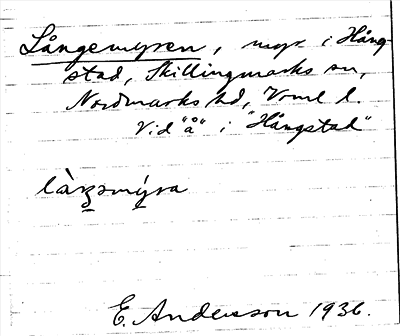 Långemyren, myr i Hång-
stad, Skillingmarks sn,
Nordmarks hd, Vrml l.
Vid "å" i "Hångstad"
E. Andersson 1936.